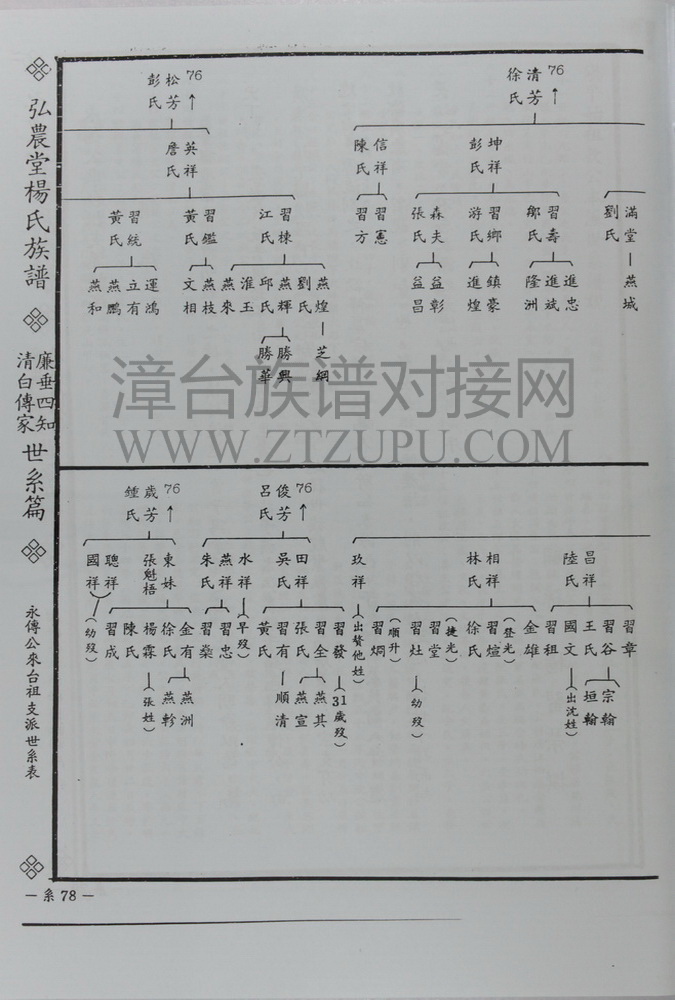 弘農堂楊氏族譜
廉垂四知
清白傳家
世系篇
永傳公來台祖支派世系表
76
清芳
徐氏
76
松芳
彭氏
坤祥
彭氏
信祥
陳氏
英祥
詹氏
滿堂
劉氏
習壽
鄔氏
習鄉
游氏
森夫
張氏
習憲
習方
習棟
江氏
習鑑
黃氏
習統
黃氏
燕城
進忠
進斌
隆洲
鎮豪
進煌
益彰
益昌
燕煌
劉氏
燕輝
邱氏
淮玉
燕來
燕枝
文相
運鴻
立有
燕鵬
燕和
芝綱
勝興
勝華
漳台族谱对接网
WWW.ZTZUPU.COM
76
俊芳
呂氏
76
歲芳
鍾氏
昌祥
陸氏
相祥
林氏
玖祥
(出贅他姓)
田祥
吳氏
水祥
(早歿)
燕祥
朱氏
東妹
張魁梧
聰祥
國祥
(幼歿)
習章
習谷
王氏
國文
(出沈姓)
習祖
金雄
(登光)
習煊
徐氏
(捷光)
習堂
習灶
(幼歿)
(順升)
習炯
習發
(31歲歿)
習全
張氏
習有
黃氏
習忠
習燊
金有
徐氏
楊霖
(張姓)
陳氏
習成
宗翰
垣翰
燕其
燕宣
順清
燕洲
燕軫
— 系 78 —